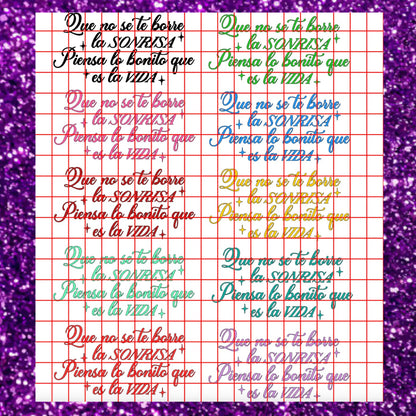 Que no se te borre
la SONRISA
Piensa lo bonito que
es la VIDA
Que no se te borre
la SONRISA
Piensa lo bonito que
es la VIDA
Que no se te borre
la SONRISA
Piensa lo bonito que
es la VIDA
Que no se te borre
la SONRISA
Piensa lo bonito que
es la VIDA
Que no se te borre
la SONRISA
Piensa lo bonito que
es la VIDA
Que no se te borre
la SONRISA
Piensa lo bonito que
es la VIDA
Que no se te borre
la SONRISA
Piensa lo bonito que
es la VIDA
Que no se te borre
la SONRISA
Piensa lo bonito que
es la VIDA
Que no se te borre
la SONRISA
Piensa lo bonito que
es la VIDA
Que no se te borre
la SONRISA
Piensa lo bonito que
es la VIDA